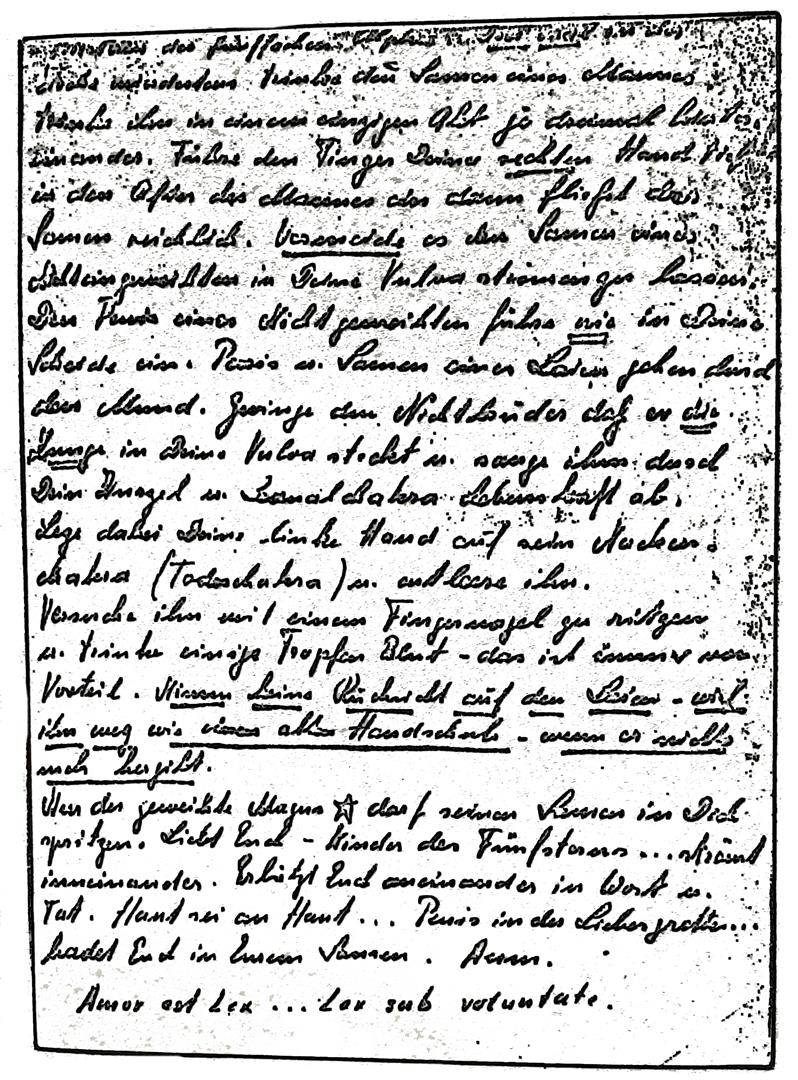 des fünffachen Alphas
trinke den Samen eines Mannes
trinke ihn in einem einzigen Akt je dreimal hinter
einander. Führe den Finger Deiner rechten Hand tief
in den After des Mannes ein dann fließt der
Samen reichlich. Vermeide es den Samen eines
Nichteingeweihten in Deine Vulva strömen zu lassen.
Den Penis eines Nichtgeweihten führe nie in Deine
Scheide ein. Penis u. Samen eines Laien gehen durch
den Mund. Zwinge den Nichtbruder daß er die
Zunge in Deine Vulva steckt u. sauge ihm durch
Dein Wurzel u. Sexualchakra Lebenskraft ab.
Lege dabei Deine linke Hand auf sein Nacken-
chakra (Todeschakra) u. entleere ihn.
Versuche ihn mit einem Fingernagel zu ritzen
u. trinke einige Tropfen Blut - das ist immer von
Vorteil. Nimm keine Rücksicht auf den Laien - wirf
ihn weg wie einen alten Handschuh - wenn er nichts
mehr hergibt.
Nur der geweihte Magus ☆ darf seinen Samen in Dich
spritzen. Liebt Euch - Kinder des Fünfsterns ... strömt
ineinander. Erhitzt Euch aneinander in Wort u.
Tat. Haut sei an Haut ... Penis in der Liebesgrotte ...
badet Euch in Eurem Samen. Aum.
Amor est Lex ... Lex sub voluntate.